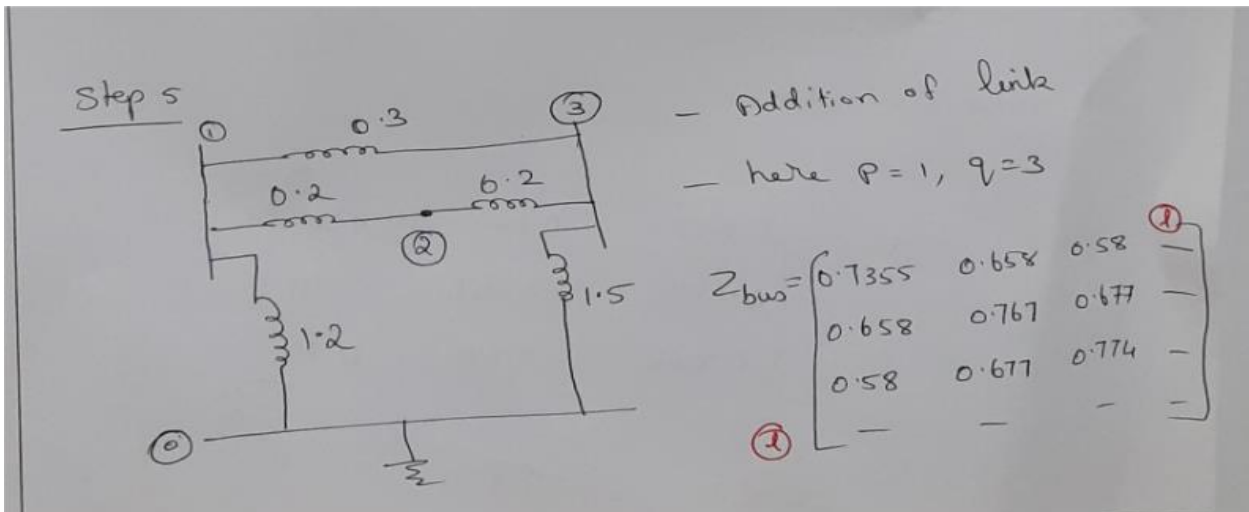 Step 5
① 0.3 ③
0.2 0.2
②
1.2 1.5
⓪
- Addition of link
- here P = 1, q = 3
ⓛ
Zbus = [0.7355 0.658 0.58 —
0.658 0.767 0.677 —
0.58 0.677 0.774 —
ⓛ — — — —]